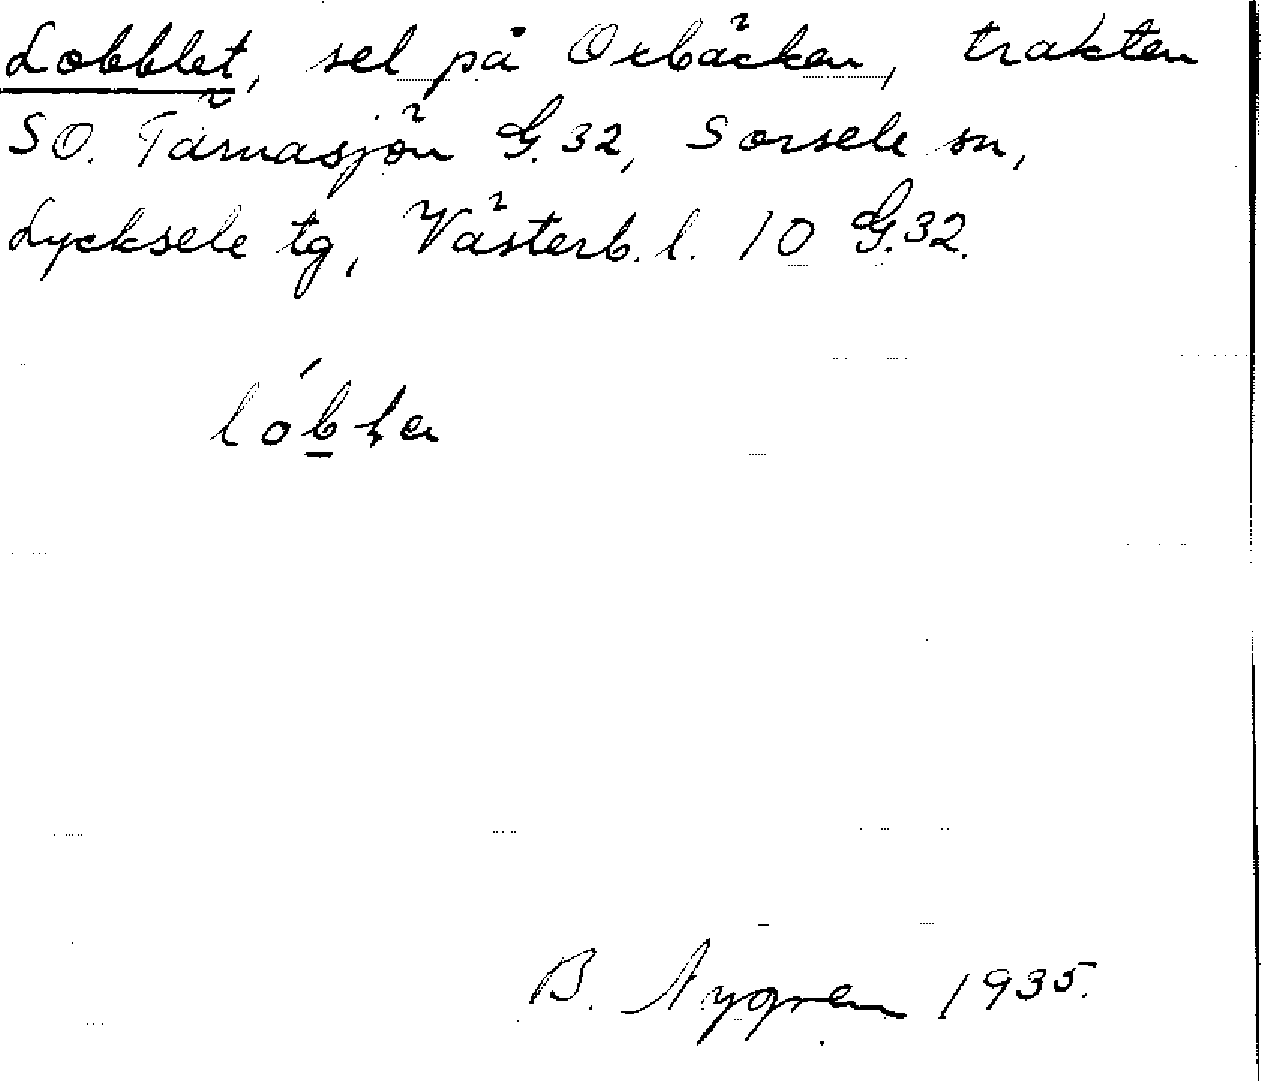 Lobblet, sel på Oxbäcken, trakten
SO. Tärnasjön G.32, Sorsele sn,
Lycksele tg, Västerb. l. 10 G.32.
B. Nygren 1935.